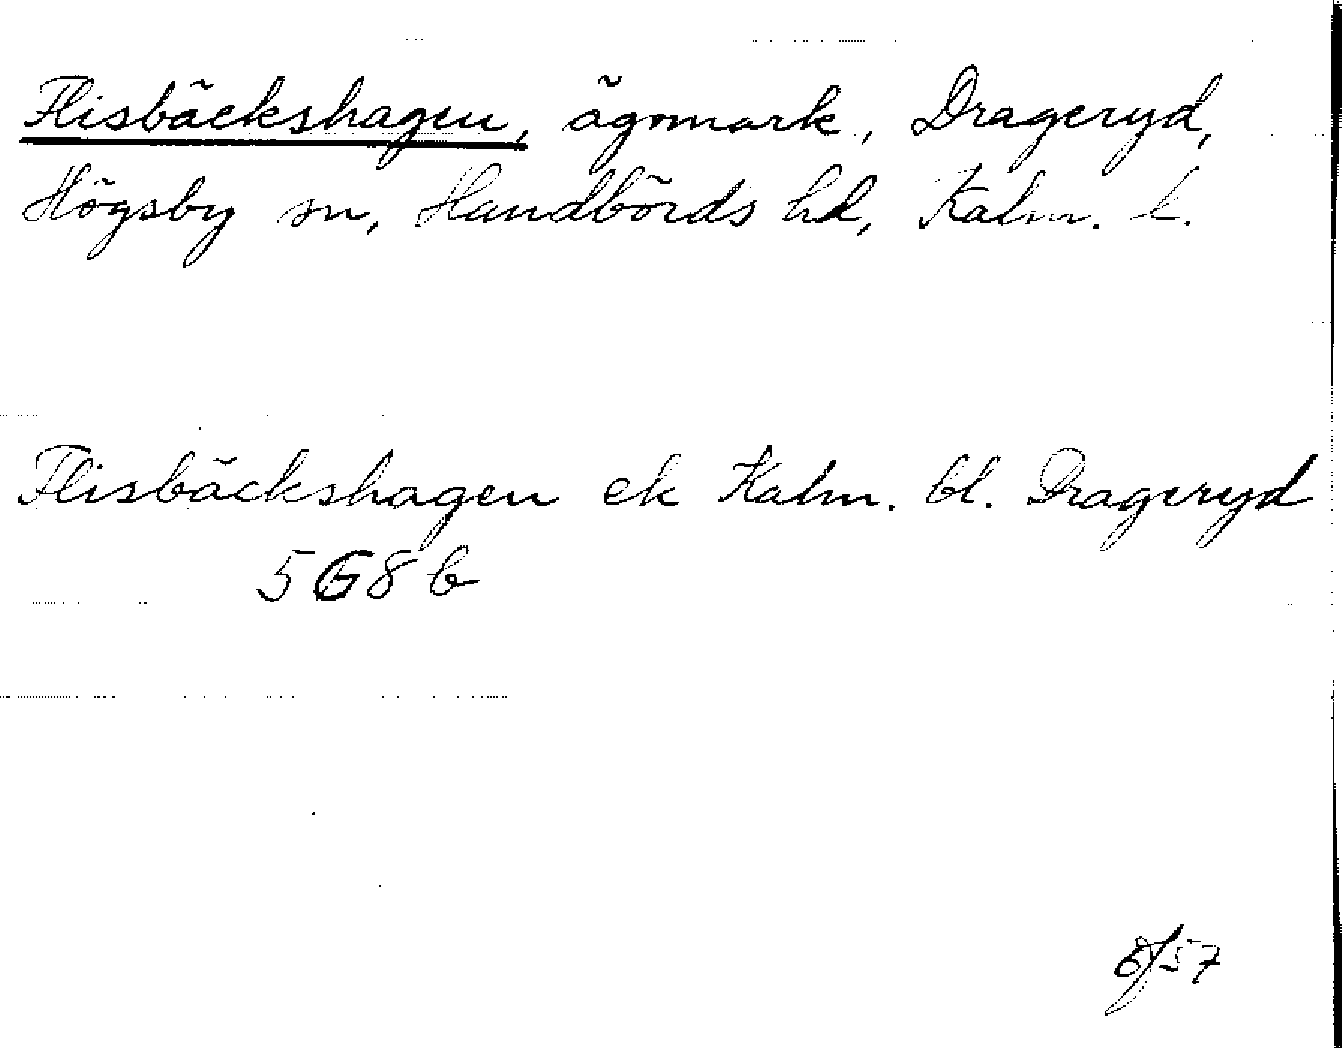 Flisbäckshagen, ägomark, Drageryd,
Högsby sn, Handbörds hd, Kalm. l.
Flisbäckshagen ek Kalm. bl. Drageryd
5G8b
6/57